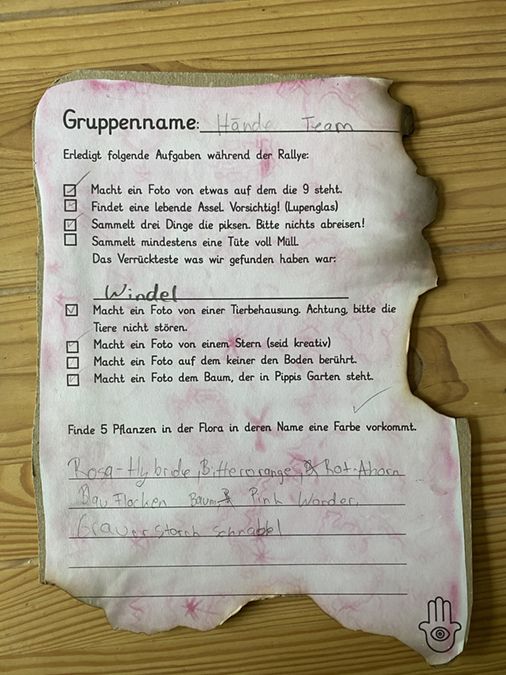 Gruppenname: Hände Team
Erledigt folgende Aufgaben während der Rallye:
Macht ein Foto von etwas auf dem die 9 steht.
Findet eine lebende Assel. Vorsichtig! (Lupenglas)
Sammelt drei Dinge die piksen. Bitte nichts abreisen!
Sammelt mindestens eine Tüte voll Müll.
Das Verrückteste was wir gefunden haben war:
Windel
Macht ein Foto von einer Tierbehausung. Achtung, bitte die
Tiere nicht stören.
Macht ein Foto von einem Stern (seid kreativ)
Macht ein Foto auf dem keiner den Boden berührt.
Macht ein Foto dem Baum, der in Pippis Garten steht.
Finde 5 Pflanzen in der Flora in deren Name eine Farbe vorkommt.
Rosa-Hybride, Bitterorange, Rot-Ahorn
Blau Flocken Baum, Pink Wonder,
Grauer storch schnabel